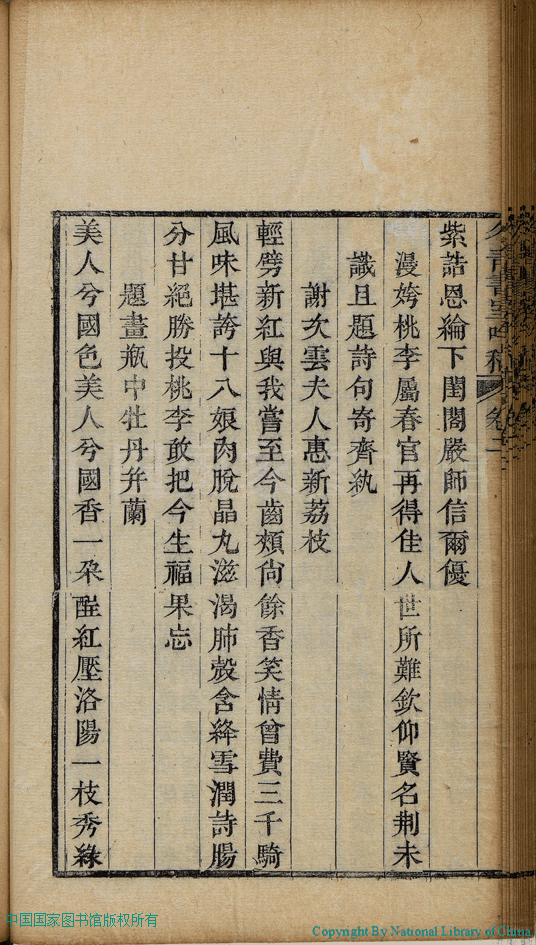 紫誥恩綸下閨閣嚴師信爾優
漫姱桃李屬春官再得佳人世所難欽仰賢名荆未
識且題詩句寄齊紈
謝次雲夫人惠新荔枝
輕劈新紅與我嘗至今齒頰尙餘香笑情曾費三千騎
風味堪誇十八娘肉脫晶丸滋渴肺殼含絳雪潤詩腸
分甘絕勝投桃李敢把今生福果忘
題畫瓶中牡丹幷蘭
美人兮國色美人兮國香一朶酲紅壓洛陽一枝秀綠
中国国家图书馆版权所有
Copyright By National Library of China